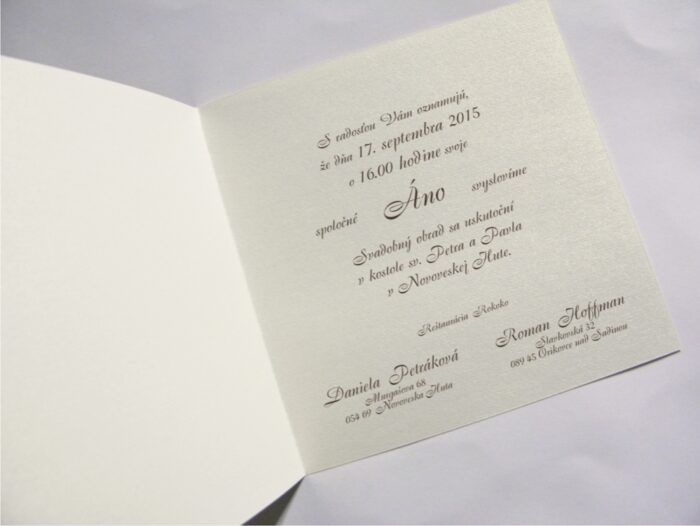 S radosťou Vám oznamujú,
že dňa 17. septembra 2015
o 16.00 hodine svoje
spoločné Áno vyslovíme
Svadobný obrad sa uskutoční
v kostole sv. Petra a Pavla
v Novoveskej Hute.
Reštaurácia Rokoko
Daniela Petráková
Murgašova 68
054 09 Novoveska Huta
Roman Hoffman
Slavkovská 32
089 45 Orikovce nad Sadinou